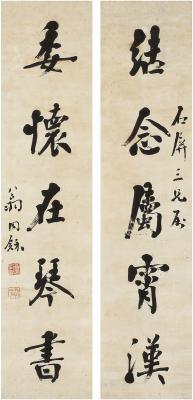 結念屬霄漢
石屏三兄屬
委懷在琴書
翁同龢